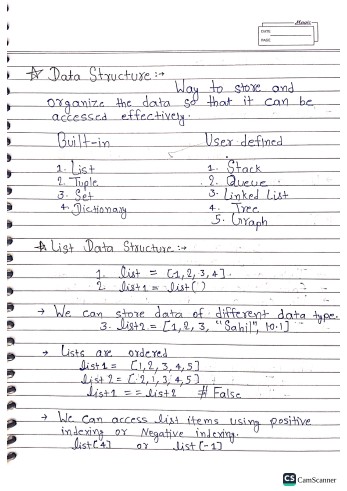 Magic
DATE
PAGE
☆ Data Structure :→
Way to store and
organize the data so that it can be
accessed effectively.
Built-in User defined
1. List 1. Stack
2. Tuple 2. Queue
3. Set 3. Linked List
4. Dictionary 4. Tree
5. Graph
☆ List Data Structure :→
1. list = [1,2,3,4].
2. list1 = list()
→ We can store data of different data type.
3. list2 = [1,2,3, "Sahil", 10.1]
→ Lists are ordered
list1 = [1,2,3,4,5]
list2 = [2,1,3,4,5]
list1 == list2 # False
→ We can access list items using positive
indexing or Negative indexing.
list[4] or list[-1]
CS CamScanner